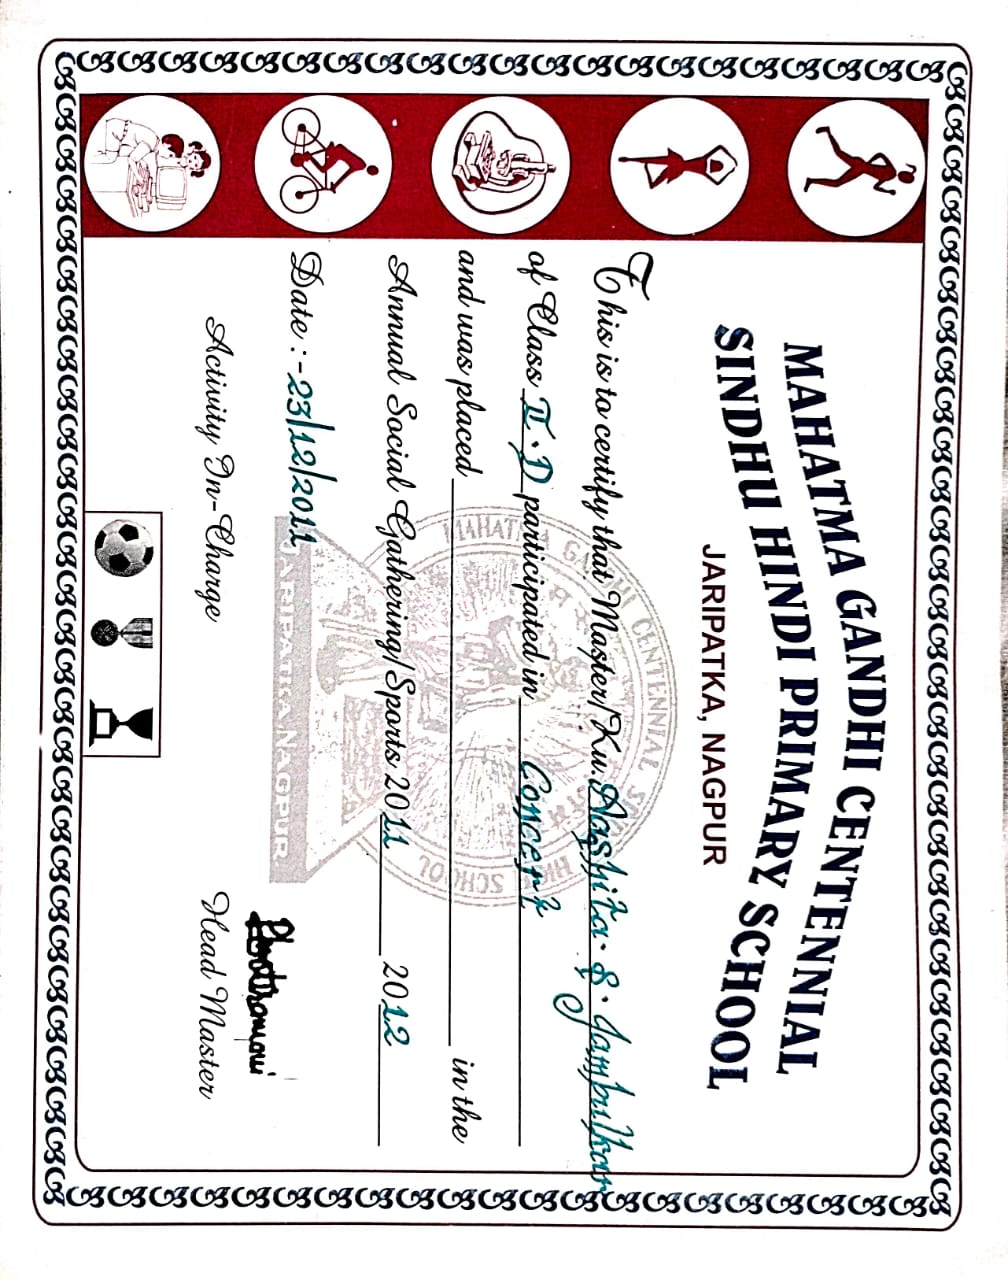 MAHATMA GANDHI CENTENNIAL
SINDHU HINDI PRIMARY SCHOOL
JARIPATKA, NAGPUR
This is to certify that Master/Ku. Aashita. S. Jambulkar
of Class II.D participated in Concert
and was placed in the
Annual Social Gathering/Sports 2011 2012
Date :- 23/12/2011
JARIPATKA, NAGPUR.
Activity In-Charge
Head Master